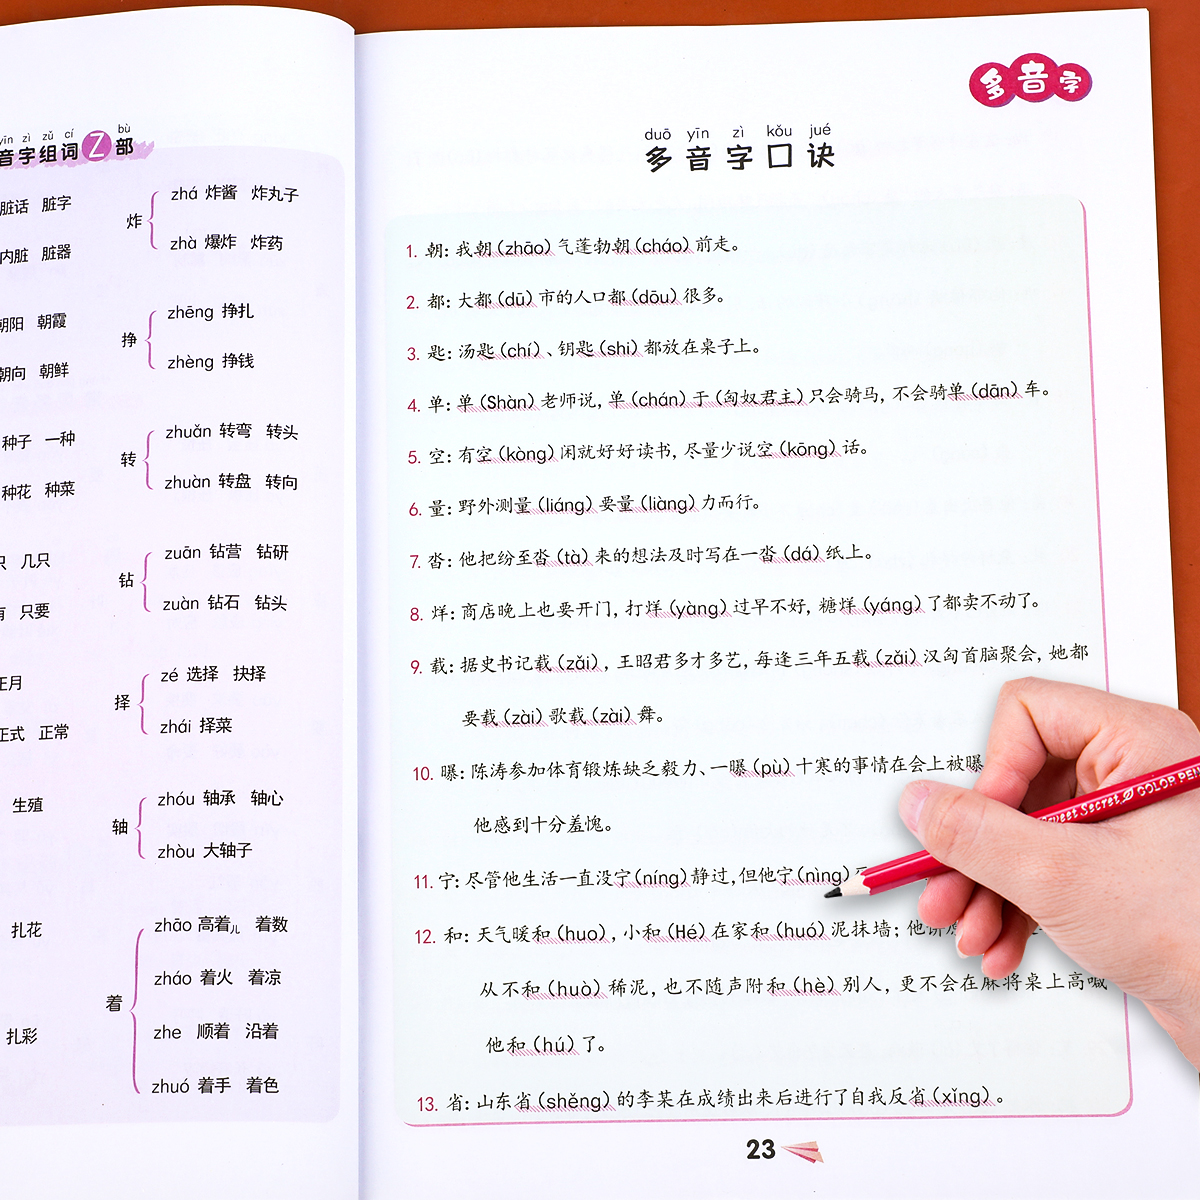 yīn zì zǔ cí bù
音字组词 Z 部
脏话 脏字
内脏 脏器
朝阳 朝霞
朝向 朝鲜
种子 一种
种花 种菜
只 几只
有 只要
正月
正式 正常
生殖
扎花
扎彩
炸
zhá 炸酱 炸丸子
zhà 爆炸 炸药
挣
zhēng 挣扎
zhèng 挣钱
转
zhuǎn 转弯 转头
zhuàn 转盘 转向
钻
zuān 钻营 钻研
zuàn 钻石 钻头
择
zé 选择 抉择
zhái 择菜
轴
zhóu 轴承 轴心
zhòu 大轴子
着
zhāo 高着儿 着数
zháo 着火 着凉
zhe 顺着 沿着
zhuó 着手 着色
多音字
duō yīn zì kǒu jué
多音字口诀
1. 朝: 我朝(zhāo)气蓬勃朝(cháo)前走。
2. 都: 大都(dū)市的人口都(dōu)很多。
3. 匙: 汤匙(chí)、钥匙(shi)都放在桌子上。
4. 单: 单(Shàn)老师说, 单(chán)于(匈奴君主)只会骑马, 不会骑单(dān)车。
5. 空: 有空(kòng)闲就好好读书, 尽量少说空(kōng)话。
6. 量: 野外测量(liáng)要量(liàng)力而行。
7. 沓: 他把纷至沓(tà)来的想法及时写在一沓(dá)纸上。
8. 烊: 商店晚上也要开门, 打烊(yàng)过早不好, 糖烊(yáng)了都卖不动了。
9. 载: 据史书记载(zǎi), 王昭君多才多艺, 每逢三年五载(zǎi)汉匈首脑聚会, 她都
要载(zài)歌载(zài)舞。
10. 曝: 陈涛参加体育锻炼缺乏毅力、一曝(pù)十寒的事情在会上被曝
他感到十分羞愧。
11. 宁: 尽管他生活一直没宁(níng)静过,但他宁(nìng)
12. 和: 天气暖和(huo), 小和(Hé)在家和(huó)泥抹墙; 他讲
从不和(huò)稀泥, 也不随声附和(hè)别人, 更不会在麻将桌上高喊
他和(hú)了。
13. 省: 山东省(shěng)的李某在成绩出来后进行了自我反省(xǐng)。
Sweet Secret COLOR PEN
23